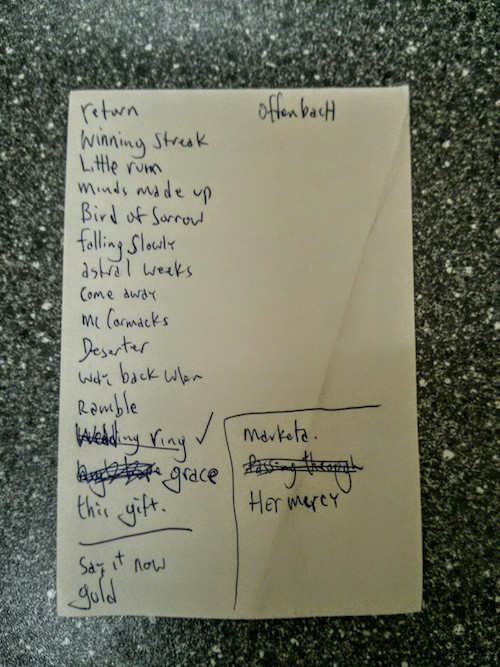 return
Offenbach
Winning Streak
Little ruin
minds made up
Bird of Sorrow
falling Slowly
astral weeks
Come away
McCormacks
Deserter
way back when
Ramble
Wedding ring ✓
grace
this gift.
Say it now
gold
Marketa.
Passing through
Her mercy